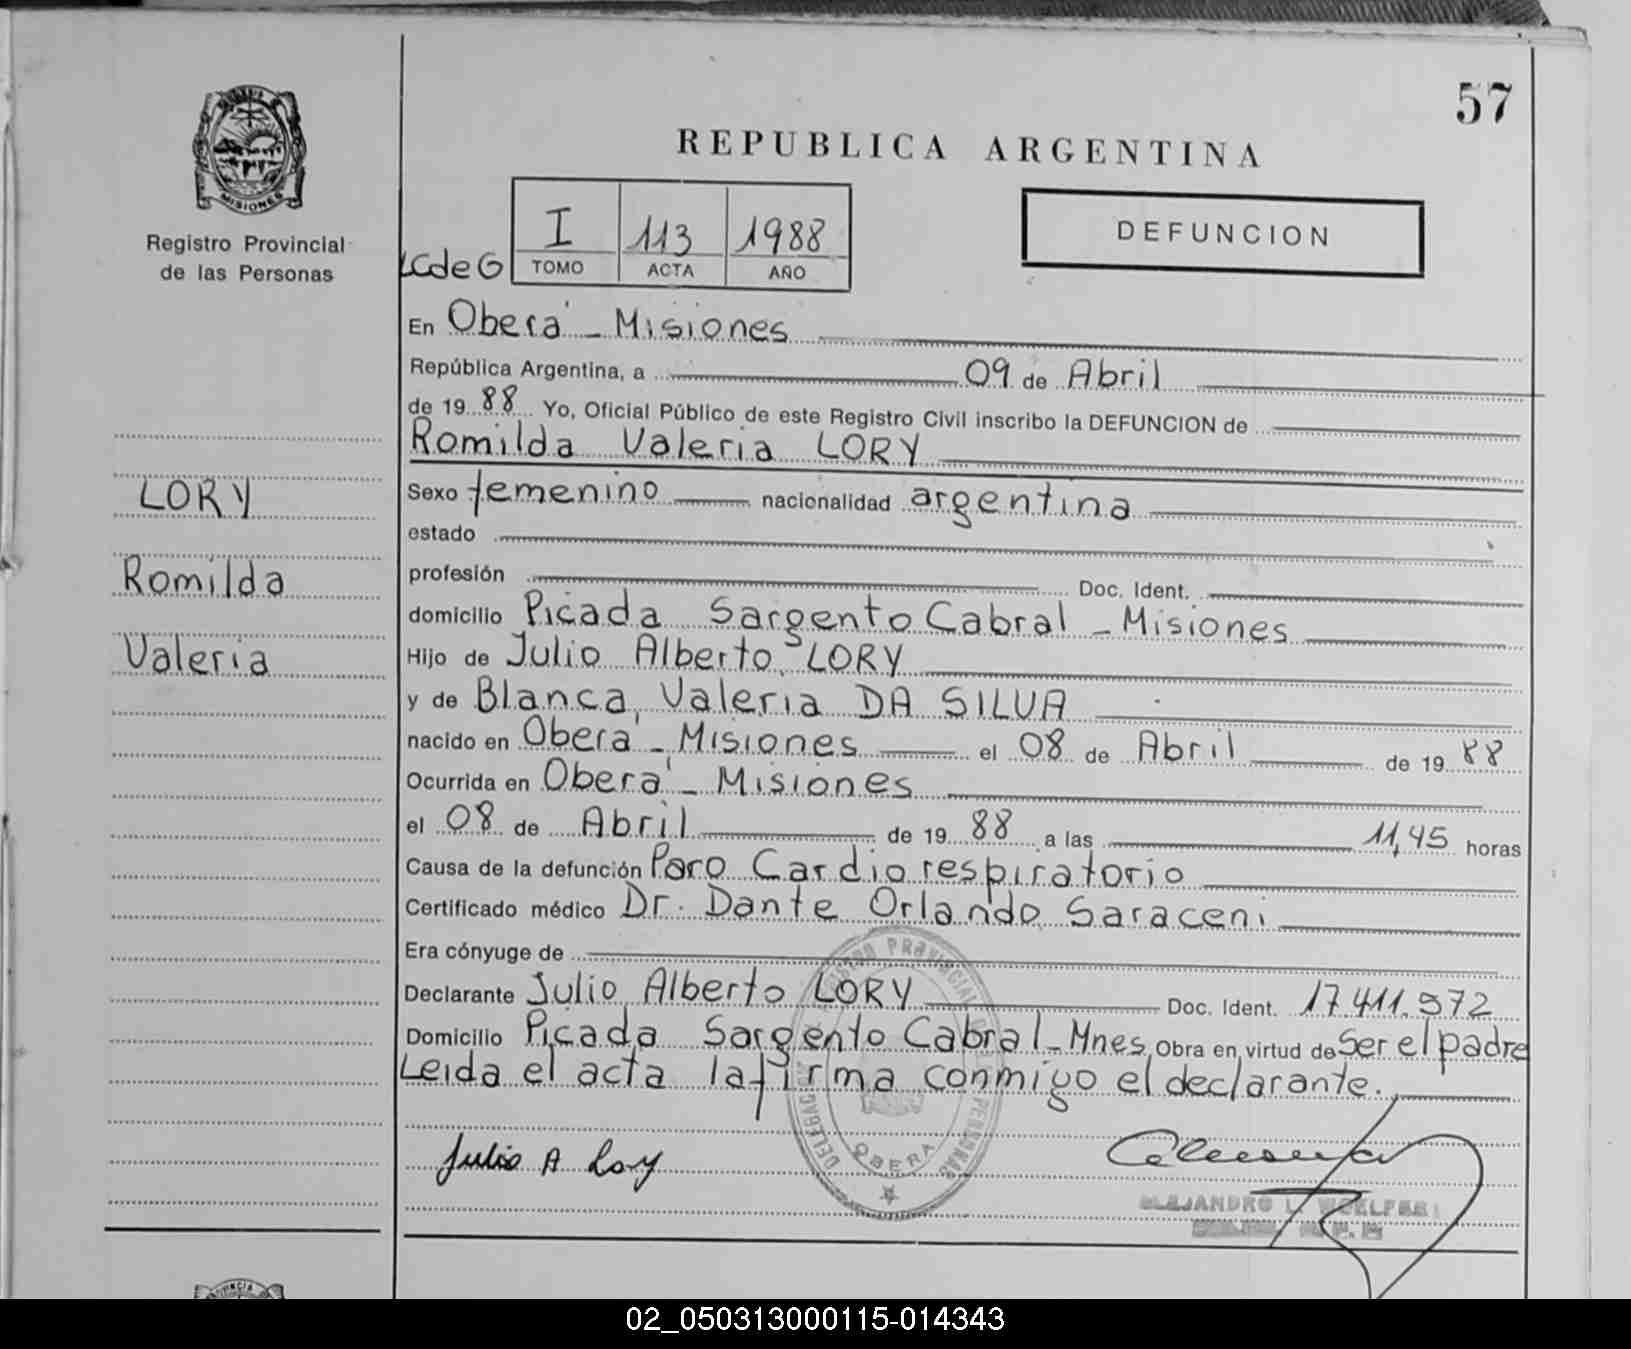 57
REPUBLICA ARGENTINA
MISIONES
Registro Provincial
de las Personas
LCdeG
I 113 1988
TOMO ACTA AÑO
DEFUNCION
En Oberá - Misiones
República Argentina, a 09 de Abril
de 19 88 Yo, Oficial Público de este Registro Civil inscribo la DEFUNCION de
Romilda Valeria LORY
LORY
Romilda
Valeria
Sexo femenino nacionalidad argentina
estado
profesión Doc. Ident.
domicilio Picada Sargento Cabral - Misiones
Hijo de Julio Alberto LORY
y de Blanca Valeria DA SILVA
nacido en Oberá - Misiones el 08 de Abril de 19 88
Ocurrida en Oberá - Misiones
el 08 de Abril de 19 88 a las 11,45 horas
Causa de la defunción Paro Cardiorespiratorio
Certificado médico Dr. Dante Orlando Saraceni
Era cónyuge de
Declarante Julio Alberto LORY Doc. Ident. 17.411.972
Domicilio Picada Sargento Cabral - Mnes Obra en virtud de ser el padre
Leida el acta la firma conmigo el declarante.
Julio A Lory
OBERA
ALEJANDRO L.
02_050313000115-014343